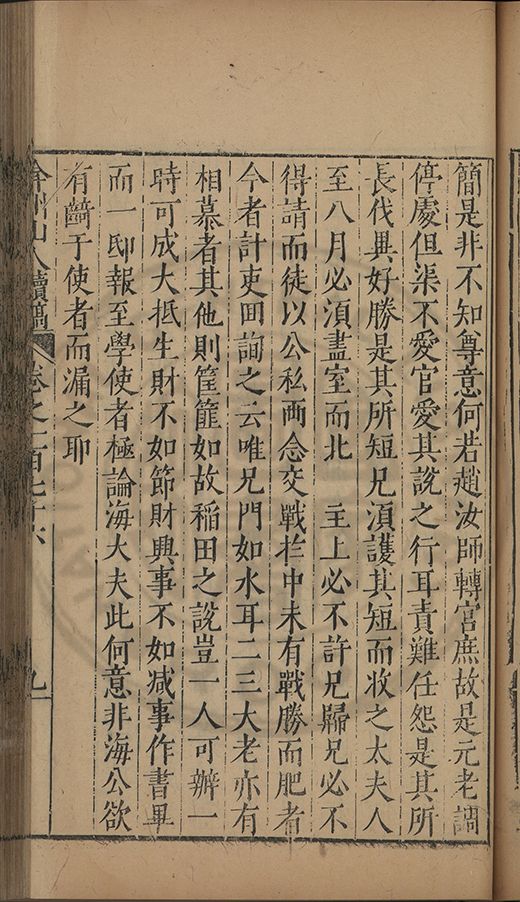 簡是非不知尊意何若趙汝師轉宮庶故是元老調
停處但渠不愛官愛其說之行耳責難任怨是其所
長伐異好勝是其所短兄湏護其短而收之太夫人
至八月必湏盡室而北　主上必不許兄歸兄必不
得請而徒以公私兩念交戰於中未有戰勝而肥者
今者計吏囬詢之云唯兄門如水耳二三大老亦有
相慕者其他則筐篚如故稻田之說豈一人可辦一
時可成大抵生財不如節財興事不如减事作書畢
而一邸報至學使者極論海大夫此何意非海公欲
有齮于使者而漏之耶
弇州山人續稿　卷之一百七十六　九